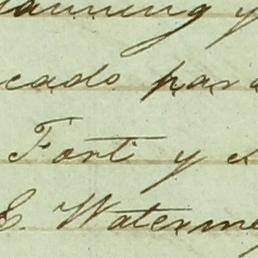 anning y
cado para
Forti y
E. Waterme